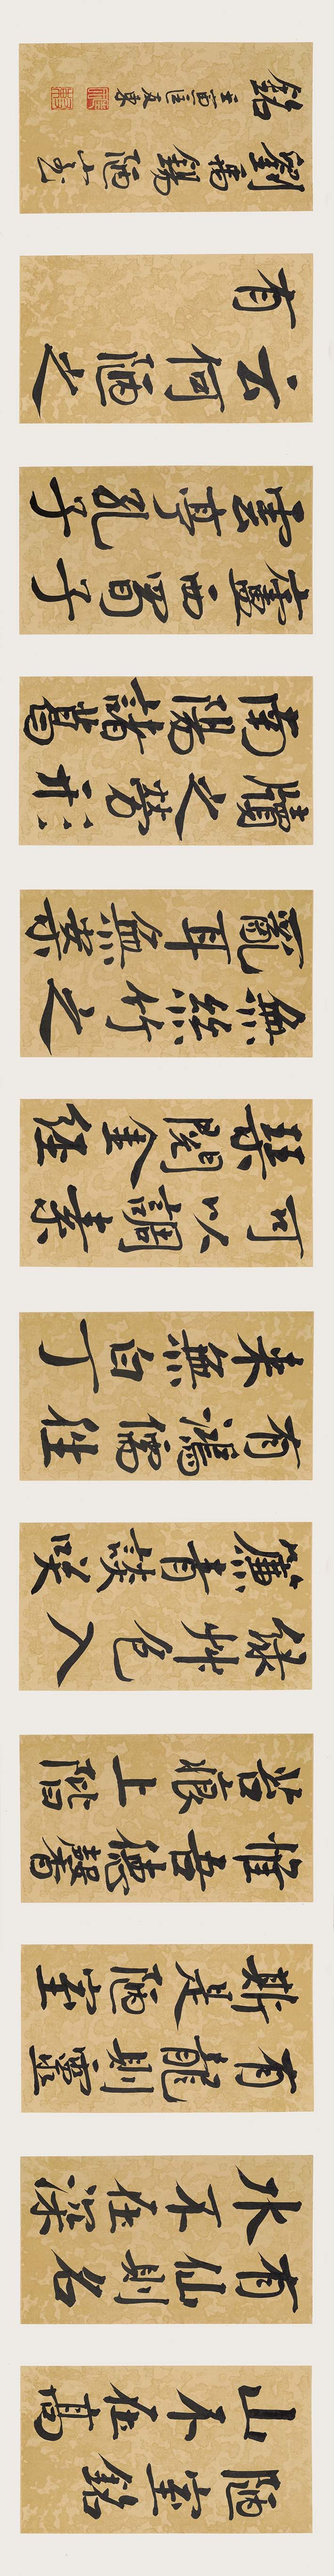 陋室銘
山不在高
有仙則名
水不在深
有龍則靈
斯是陋室
惟吾德馨
苔痕上階
綠艸色入
簾青談咲
有鴻儒往
來無白丁
可以調素
琴閱金經
無絲竹之
亂耳無案
牘之勞形
南陽諸葛
廬西蜀子
雲亭孔子
云何陋之
有
劉禹錫陋室
銘